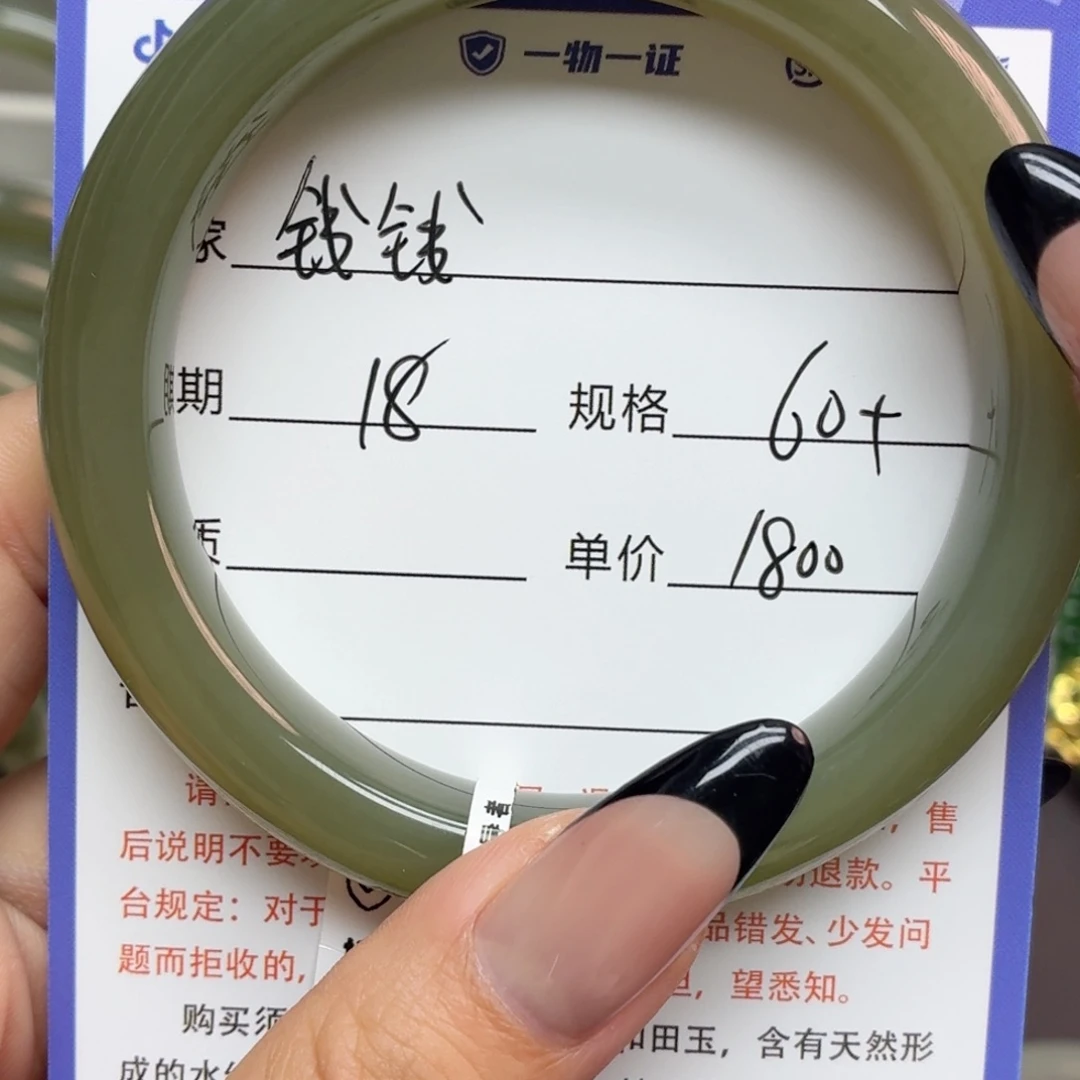 一物一证
家 钱钱
期 18 规格 60+
质 单价 1800
请
，售
后说明不要 退款。平
台规定：对于 品错发、少发问
题而拒收的， 担，望悉知。
购买须 和田玉，含有天然形
成的水